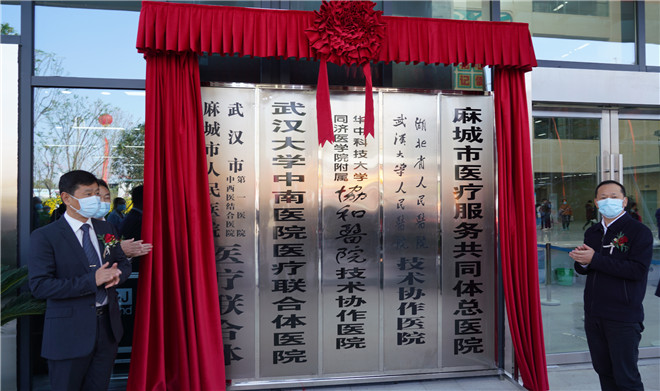 麻城市医疗服务共同体总医院
湖北省人民医院
武汉大学人民医院
技术协作医院
华中科技大学
同济医学院附属
协和醫院
技术协作医院
武汉大学中南医院医疗联合体医院
武汉市
第一医院
中西医结合医院
麻城市人民医院
医疗联合体